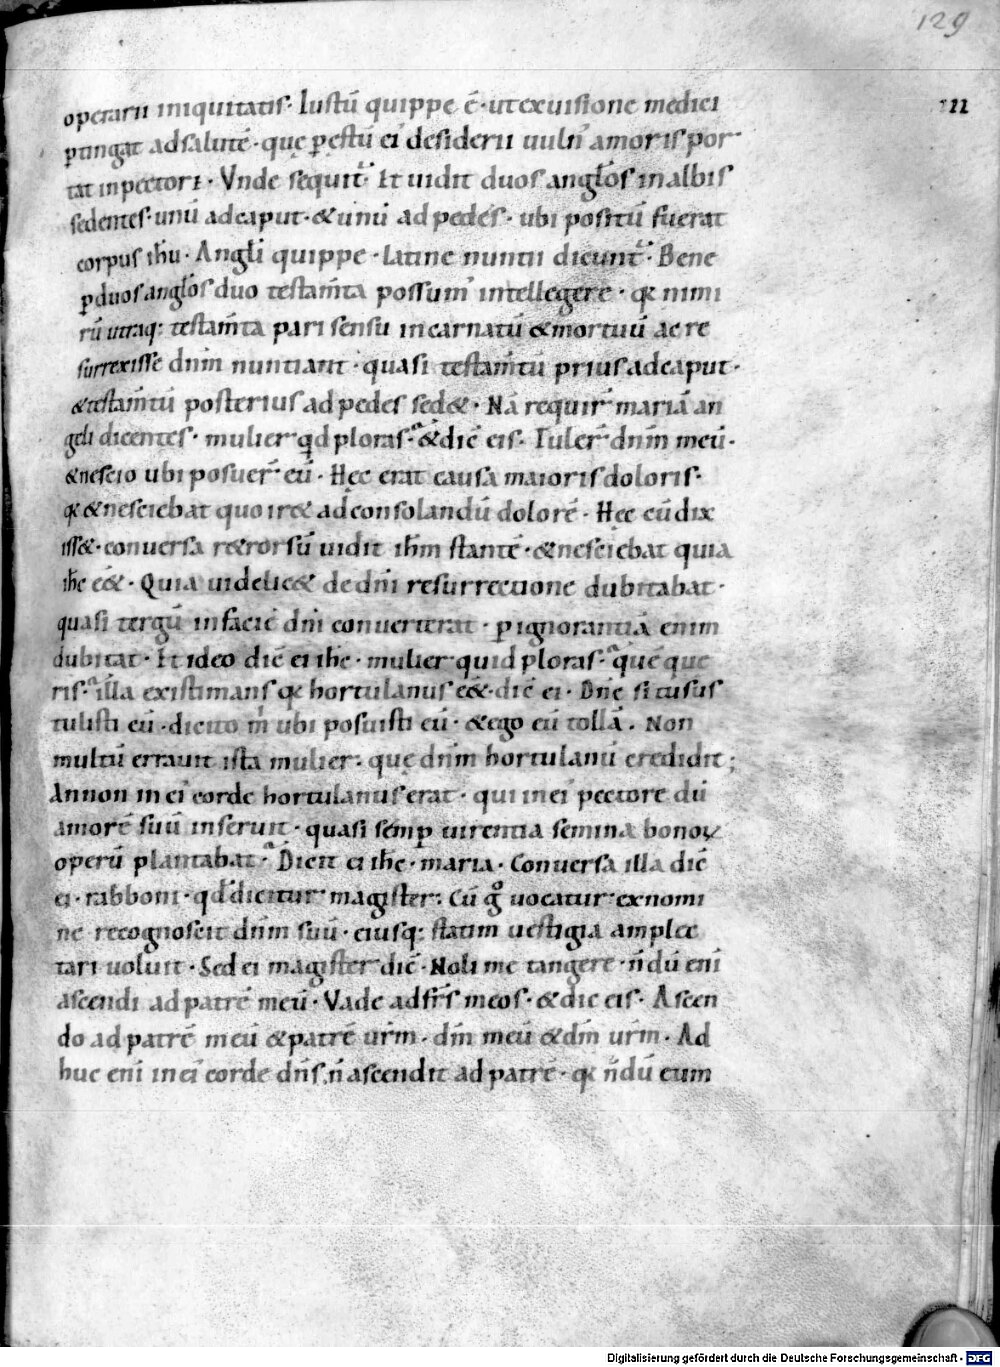 129
operarii iniquitatis· Iustū quippe ē· ut ex uisione medici
ptingat ad salutē· quę p ęstū ei desiderii uuln̄ amoris por
tat in pectori· Vnde sequit̄ Et uidit duos angłos in albis
sedentes· unū ad caput· & unū ad pedes· ubi positū fuerat
corpus ihu· Angłi quippe· latine nuntii dicunt̄· Bene
p duos angłos duo testam̄ta possum̄ intellegere· qꝛ nimi
rū utraq: testam̄ta pari sensu incarnatū & mortuū ac re
surrexisse dnm nuntiant· quasi testam̄tū prius ad caput·
& testam̄tū posterius ad pedes sed&· Nā requir̄ mariā an
geli dicentes· mulier qd ploras· & dic̄ eis· Tuler̄ dnm meū·
& nescio ubi posuer̄ eū· Hęc erat causa maioris doloris·
qꝛ & nesciebat quo ir& ad consolandū dolorē· Hęc cū dix
iss&· conuersa r&rorsū uidit ihm stantē· & nesciebat quia
ihc ēe&· Quia uidelic& de dni resurrectione dubitabat·
quasi tergū in faciē dni conuerterat· p ignorantiā enim
dubitat· Et ideo dic̄ ei ihc· mulier quid ploras· quē que
ris· illa existimans qꝛ hortulanus ēe&· dic̄ ei· Dne si tu sus
tulisti eū· dicito m̄ ubi posuisti eū· & ego eū tollā. Non
multū errauit ista mulier· quę dnm hortulanū credidit;
An non in ei corde hortulanus erat· qui in ei pectore dū
amorē suū inseruit· quasi semp uirentia semina bonoꝝ
operū plantabat· Dicit ei ihc· maria· Conuersa illa dic̄
ei· rabboni· qd dicitur magister: Cū g° uocatur ex nomi
ne recognoscit dnm suū· eiusq: statim uestigia amplec
tari uoluit· Sed ei magister dic̄· Noli me tangere· n̄dū eni
ascendi ad patrē meū· Vade ad frs̄ meos· & dic eis· Ascen
do ad patrē meū & patrē urm· dm̄ meū & dm̄ urm· Ad
huc eni in ei corde dns· n̄ ascendit ad patrē· qꝛ n̄dū eum
Digitalisierung gefördert durch die Deutsche Forschungsgemeinschaft - DFG